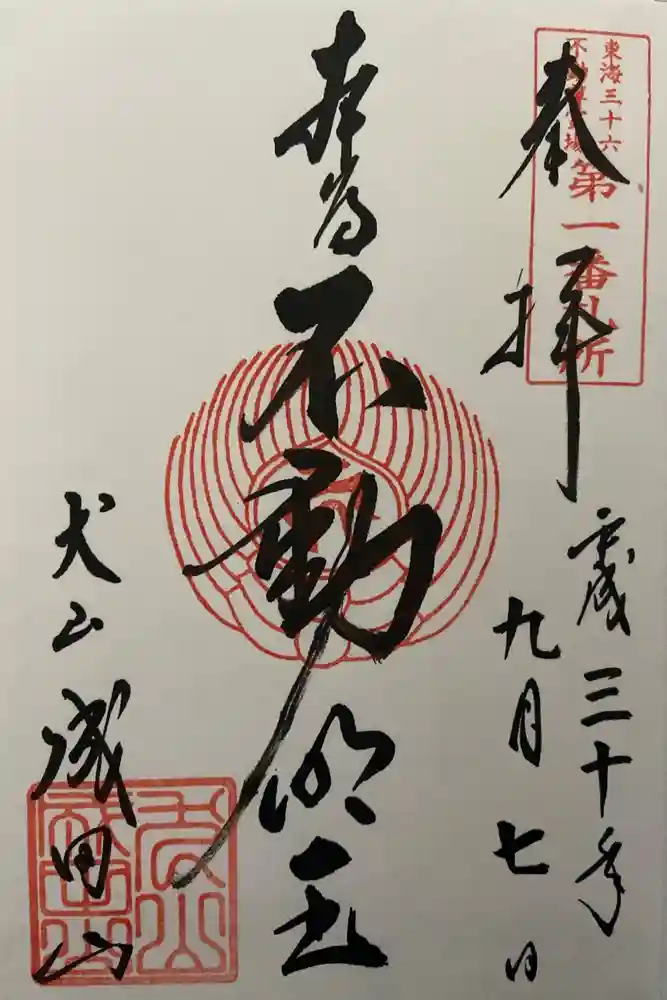 東海三十六
不動尊霊場
第一番札所
奉拝
平成三十年
九月七日
本尊
不動明王
犬山
成田山